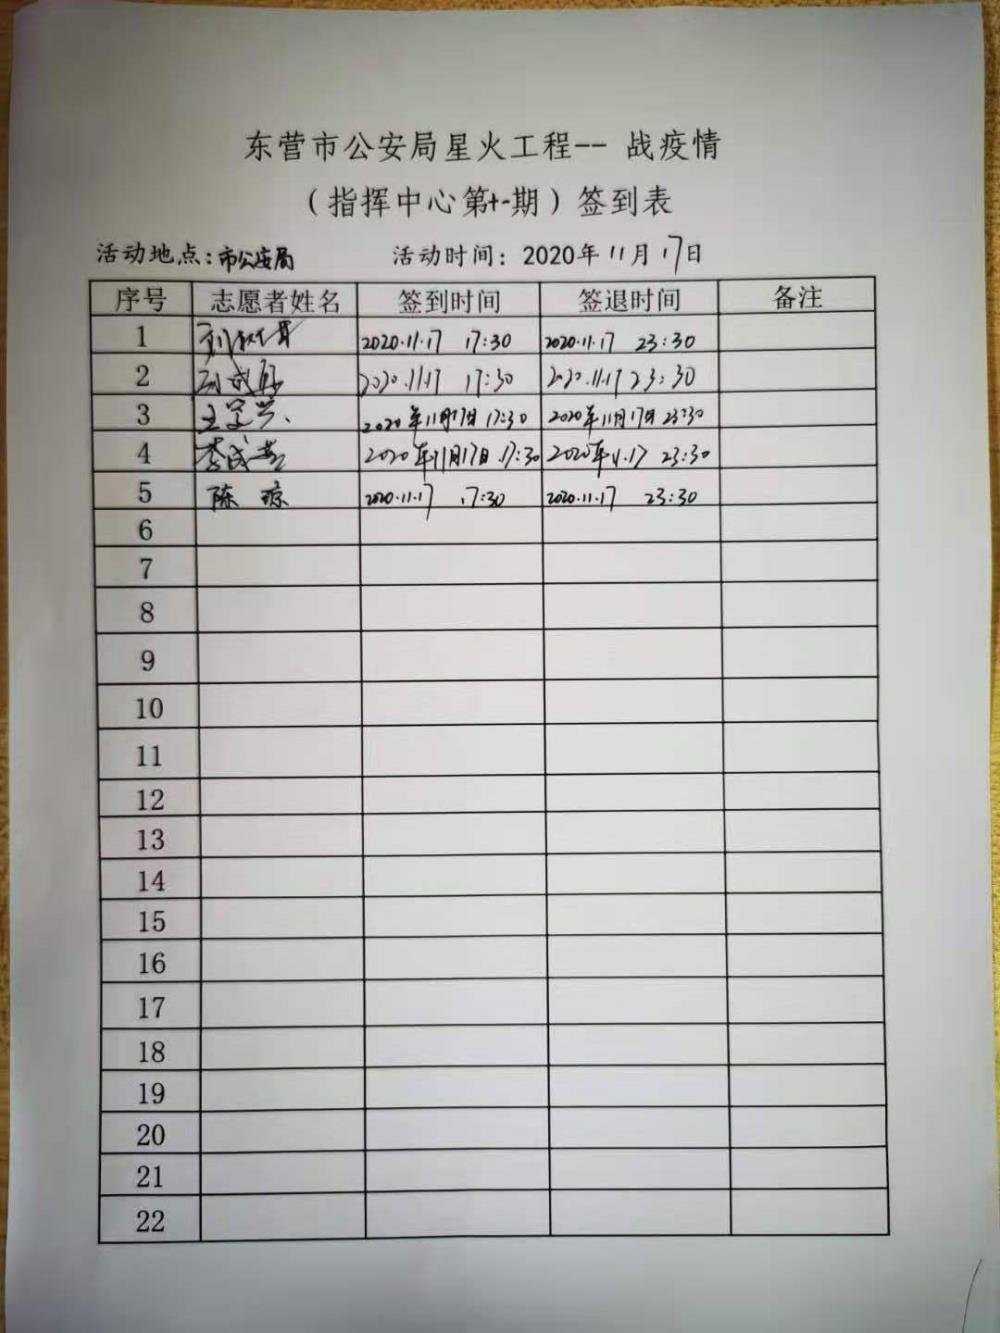 东营市公安局星火工程-- 战疫情
（指挥中心第十一期）签到表
活动地点：市公安局 活动时间：2020年11月17日
序号 志愿者姓名 签到时间 签退时间 备注
1 2020.11.17 17:30 2020.11.17 23:30
2 2020.11.17 17:30 2020.11.17 23:30
3 2020年11月17日 17:30 2020年11月17日 23:30
4 2020年11月17日 17:30 2020年11.17 23:30
5 陈琼 2020.11.17 17:30 2020.11.17 23:30
6
7
8
9
10
11
12
13
14
15
16
17
18
19
20
21
22